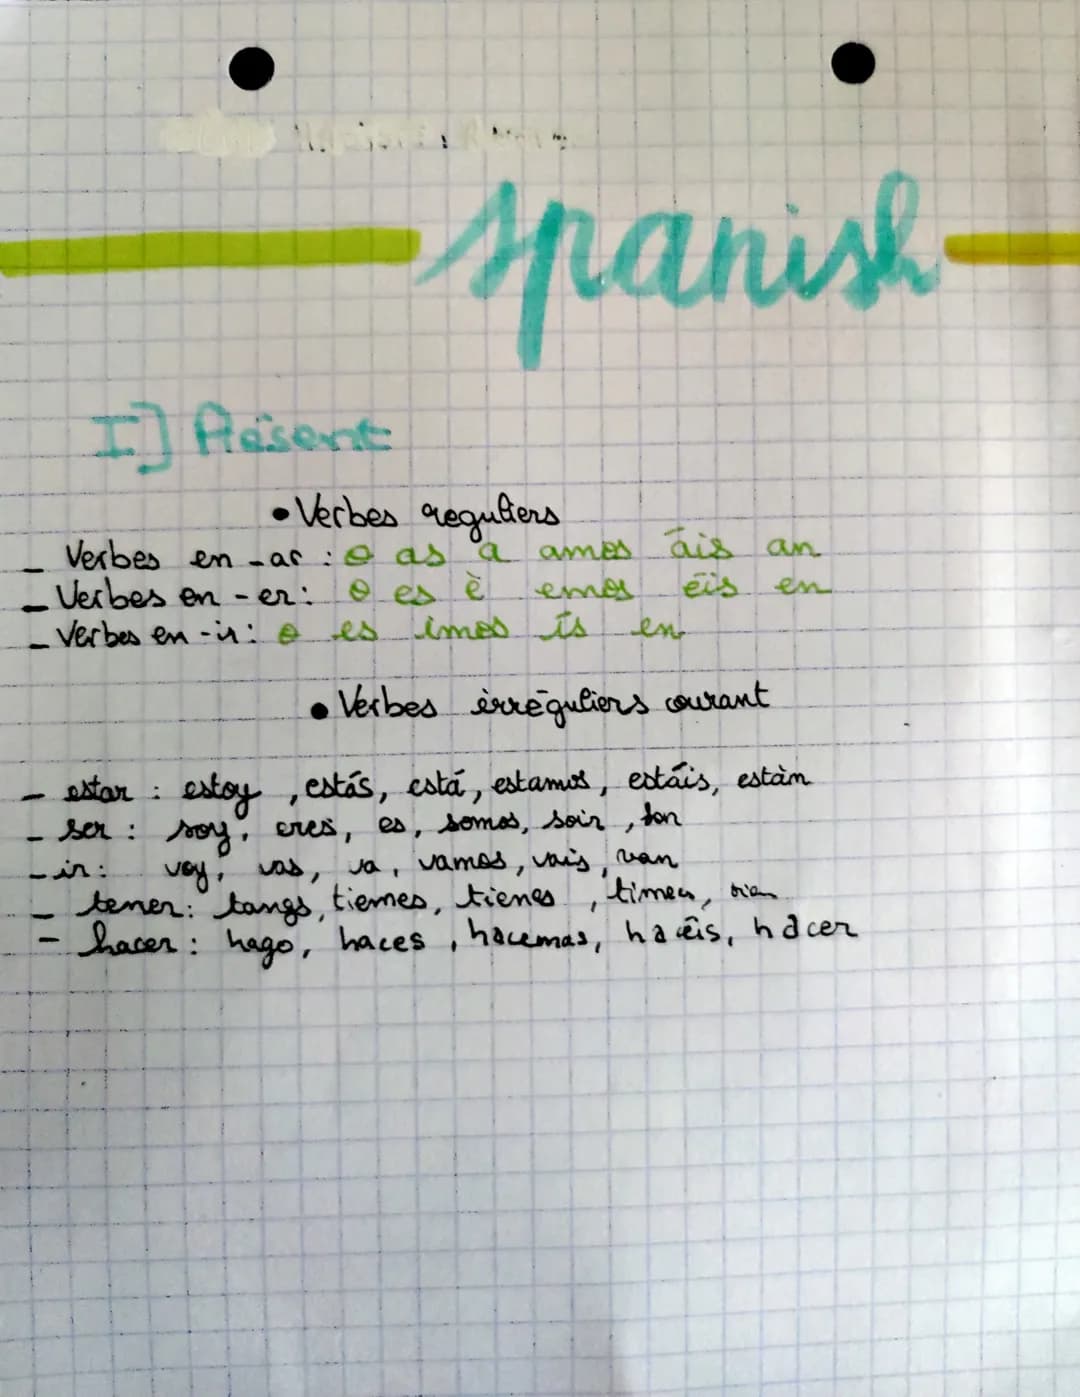 spanish
I] Présent
• Verbes reguliers
- Verbes en -ar : o as a amos áis an
- Verbes en -er : o es è emos éis en
- Verbes en -ir : o es imos ís en
• Verbes irréguliers courant
- estar : estoy, estás, está, estamos, estáis, estàn
- ser : soy, eres, es, somos, sois, son
- ir : voy, vas, va, vamos, vais, van
- tener : tangs, tiemes, tienes, timen,
- hacer : hago, haces, hacemas, hacéis, hacer